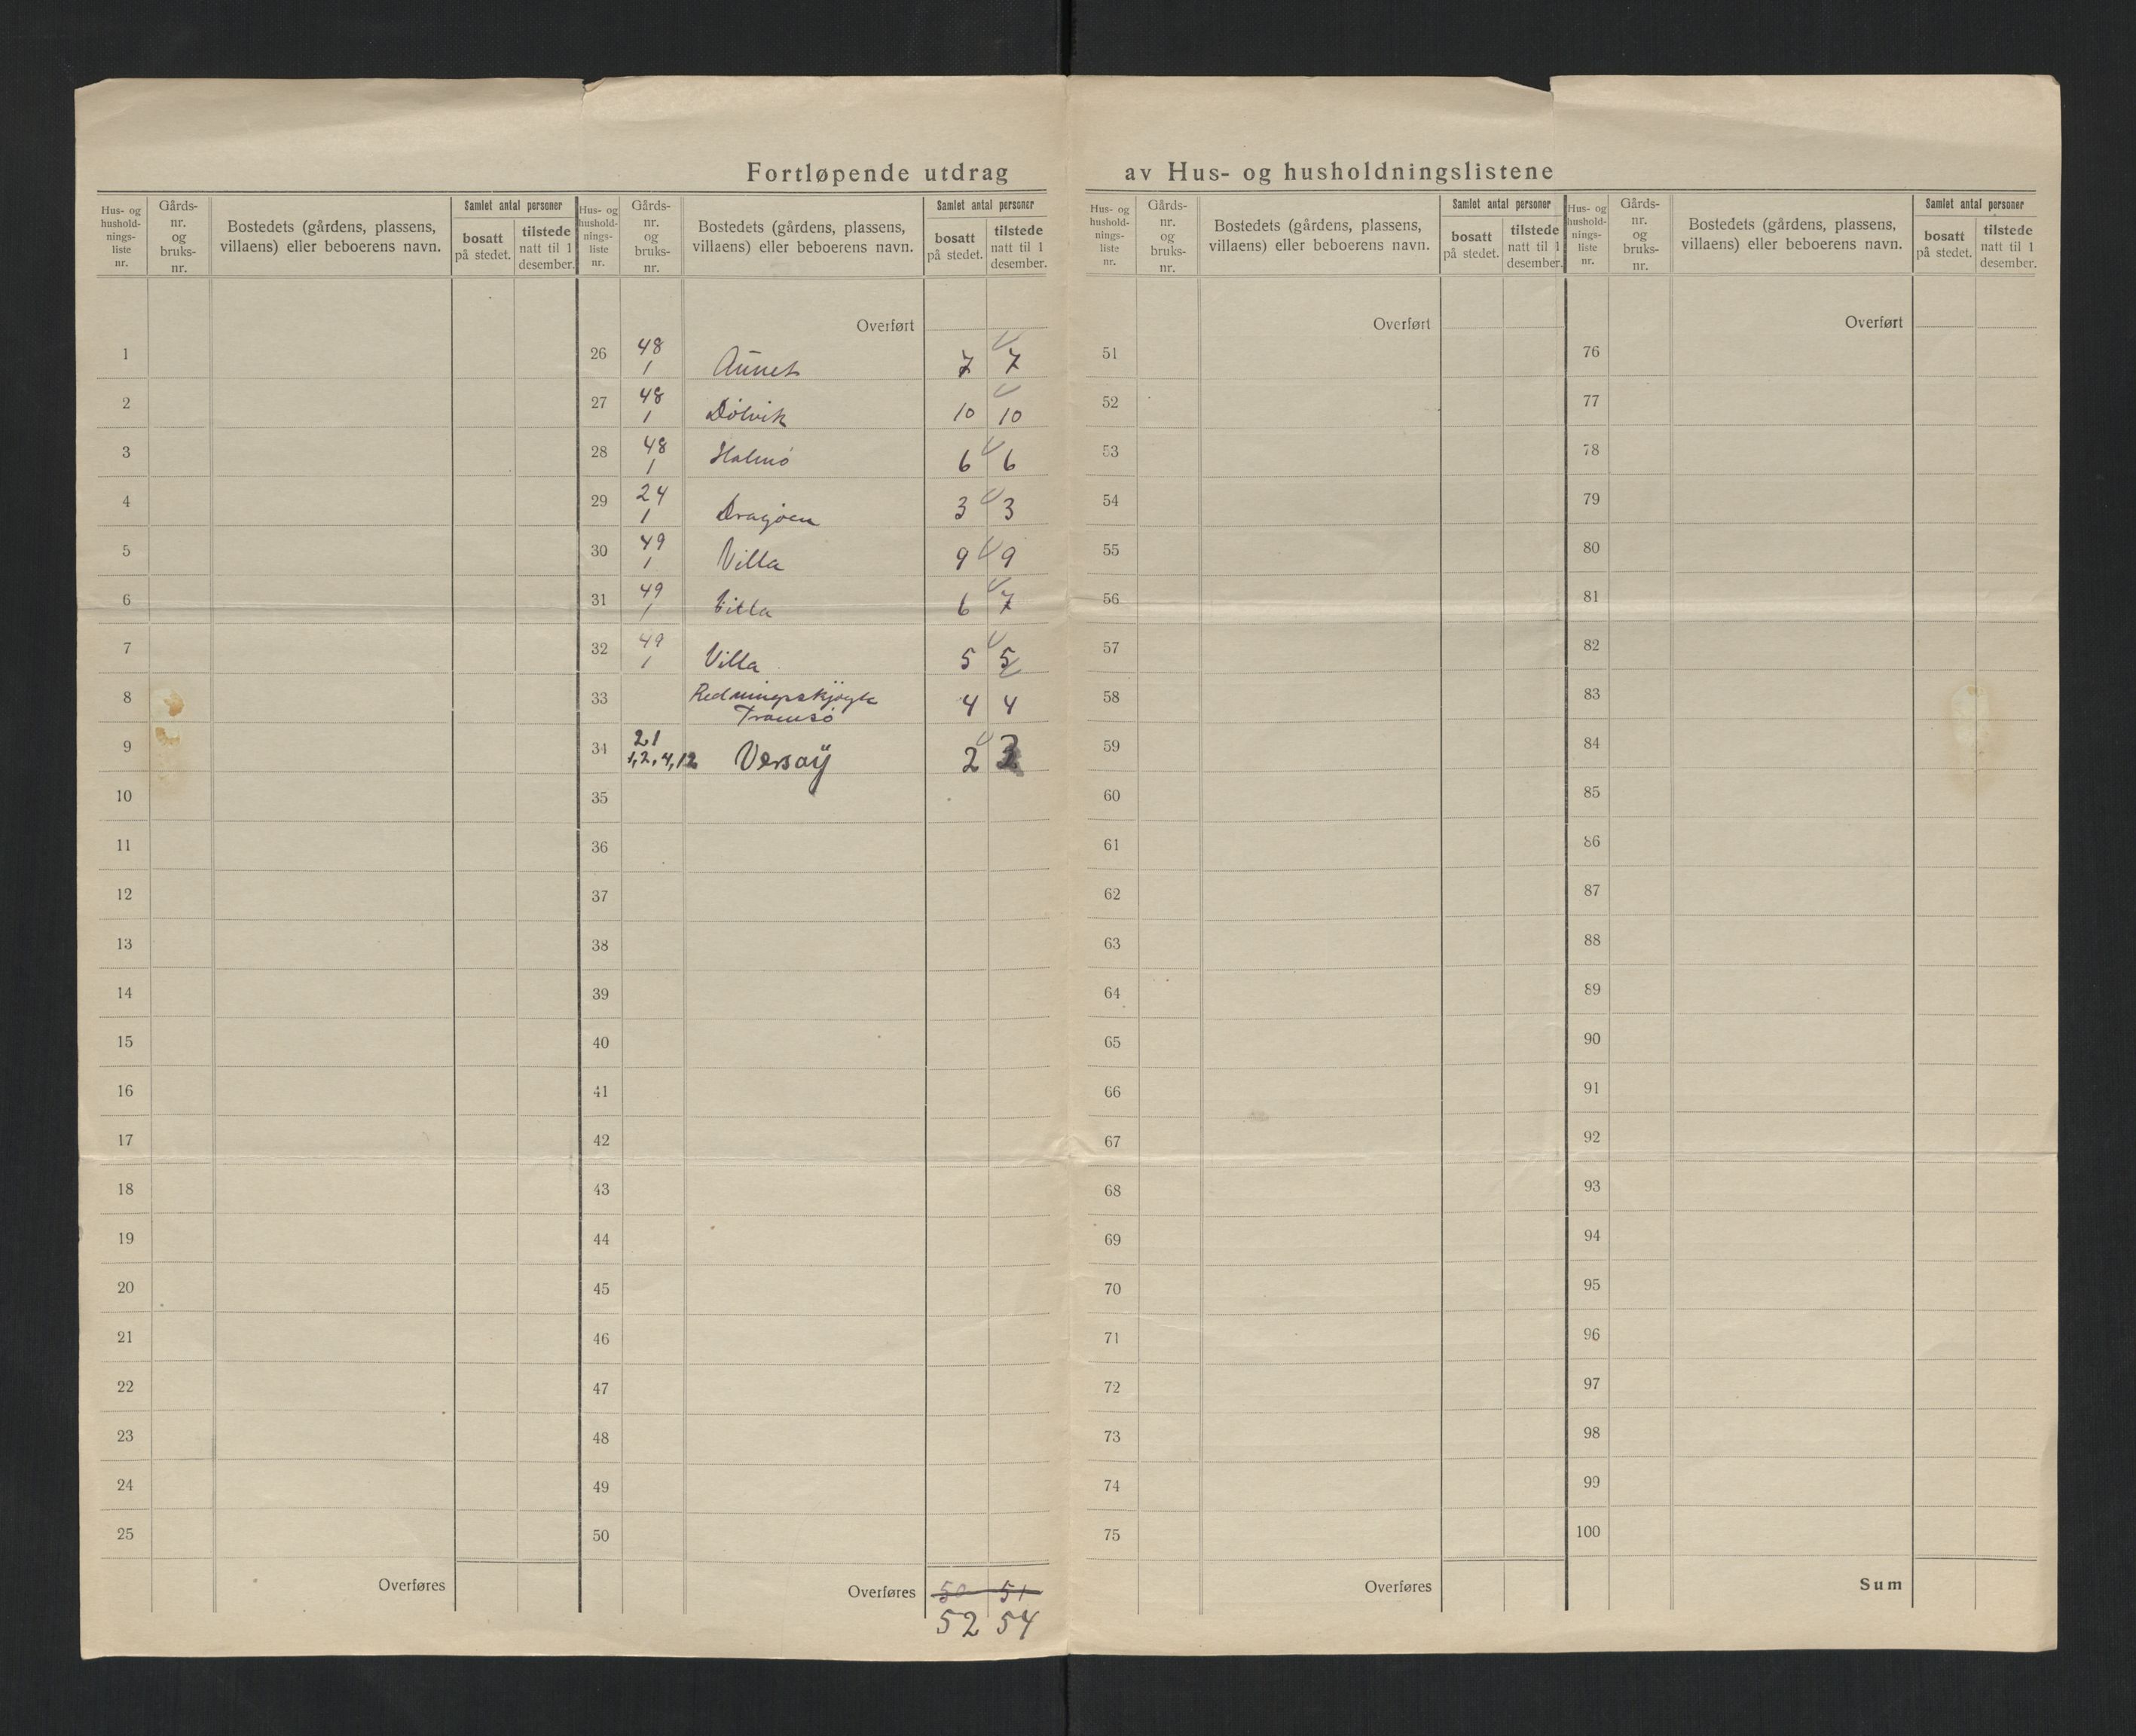 Fortløpende utdrag av Hus- og husholdningslistene
Hus- og hushold- nings- liste nr.
Gårds- nr. og bruks- nr.
Bostedets (gårdens, plassens, villaens) eller beboerens navn.
Samlet antal personer
bosatt på stedet.
tilstede natt til 1 desember.
1
2
3
4
5
6
7
8
9
10
11
12
13
14
15
16
17
18
19
20
21
22
23
24
25
Overføres
Hus- og hushold- nings- liste nr.
Gårds- nr. og bruks- nr.
Bostedets (gårdens, plassens, villaens) eller beboerens navn.
Samlet antal personer
bosatt på stedet.
tilstede natt til 1 desember.
Overført
26 48 1 Aunet 7 7
27 48 1 Dolvik 10 10
28 48 1 Halmö 6 6
29 24 1 3 3
30 49 1 Villa 9 9
31 49 1 Villa 6 7
32 49 1 Villa 5 5
33 Redningsskjøyte 4 4
Tromsö
34 21 1,2,4,12 Versøy 2 3
35
36
37
38
39
40
41
42
43
44
45
46
47
48
49
50
Overføres 50 51
52 54
Hus- og hushold- nings- liste nr.
Gårds- nr. og bruks- nr.
Bostedets (gårdens, plassens, villaens) eller beboerens navn.
Samlet antal personer
bosatt på stedet.
tilstede natt til 1 desember.
Overført
51
52
53
54
55
56
57
58
59
60
61
62
63
64
65
66
67
68
69
70
71
72
73
74
75
Overføres
Hus- og hushold- nings- liste nr.
Gårds- nr. og bruks- nr.
Bostedets (gårdens, plassens, villaens) eller beboerens navn.
Samlet antal personer
bosatt på stedet.
tilstede natt til 1 desember.
Overført
76
77
78
79
80
81
82
83
84
85
86
87
88
89
90
91
92
93
94
95
96
97
98
99
100
Sum